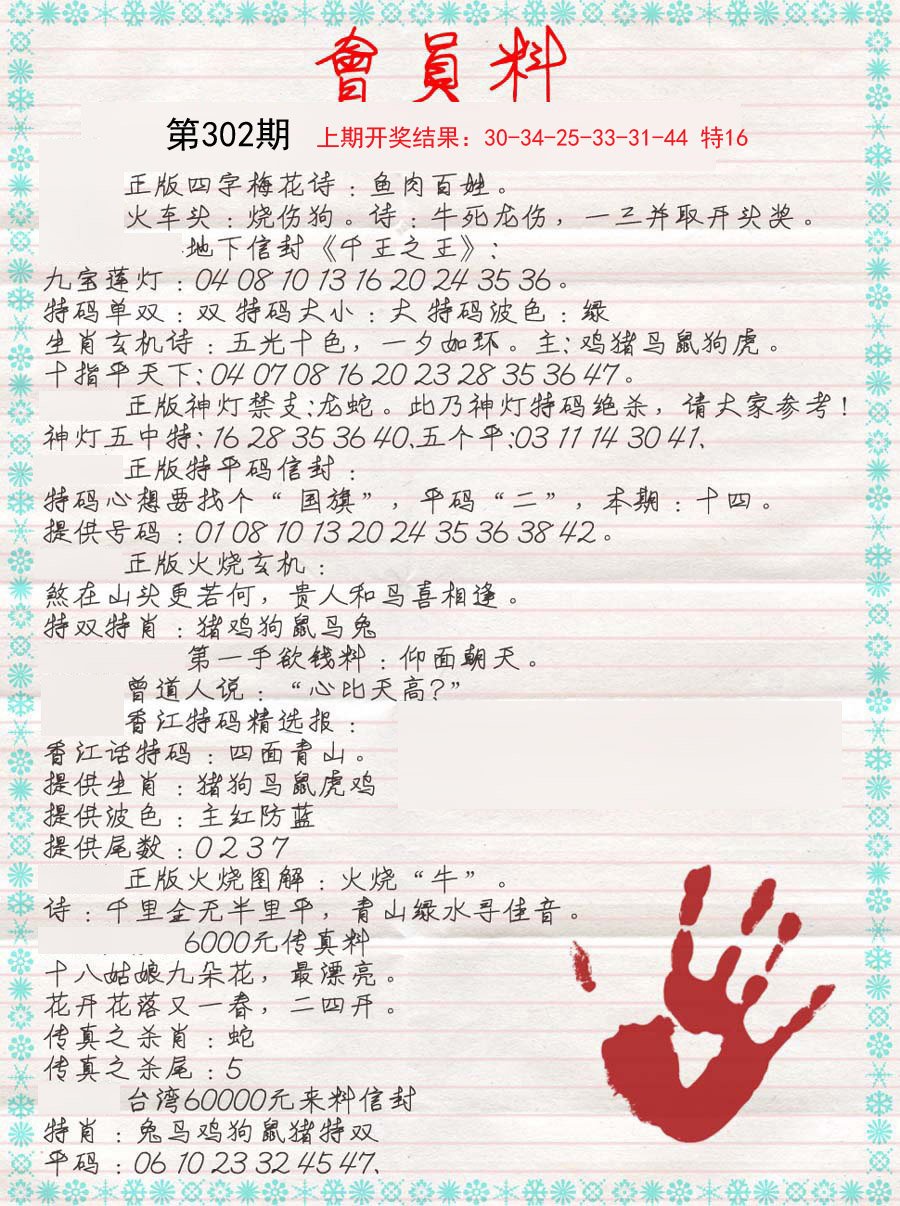 會員料
第302期 上期开奖结果：30-34-25-33-31-44 特16
正版四字梅花诗：鱼肉百姓。
火车头：烧伤狗。诗：牛死龙伤，一三并取开头奖。
地下信封《千王之王》：
九宝莲灯：04 08 10 13 16 20 24 35 36。
特码单双：双 特码大小：大 特码波色：绿
生肖玄机诗：五光十色，一夕如环。主：鸡猪马鼠狗虎。
十指平天下：04 07 08 16 20 23 28 35 36 47。
正版神灯禁支：龙蛇。此乃神灯特码绝杀，请大家参考！
神灯五中特：16 28 35 36 40、五个平：03 11 14 30 41、
正版特平码信封：
特码心想要找个“国旗”，平码“二”，本期：十四。
提供号码：01 08 10 13 20 24 35 36 38 42。
正版火烧玄机：
煞在山头更若何，贵人和马喜相逢。
特双特肖：猪鸡狗鼠马兔
第一手欲钱料：仰面朝天。
曾道人说：“心比天高？”
香江特码精选报：
香江话特码：四面青山。
提供生肖：猪狗马鼠虎鸡
提供波色：主红防蓝
提供尾数：0 2 3 7
正版火烧图解：火烧“牛”。
诗：千里金无半里平，青山绿水寻佳音。
6000元传真料
十八姑娘九朵花，最漂亮。
花开花落又一春，二四开。
传真之杀肖：蛇
传真之杀尾：5
台湾60000元来料信封
特肖：兔马鸡狗鼠猪特双
平码：06 10 23 32 45 47、